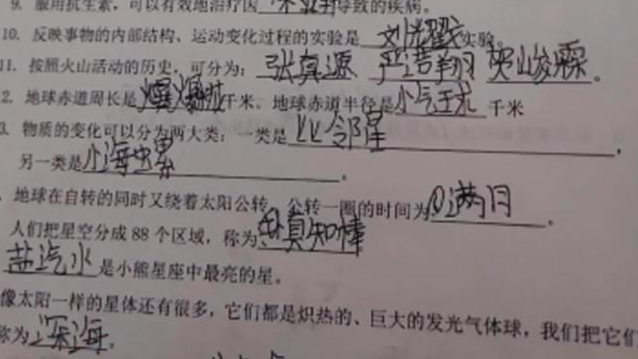 9. 服用抗生素，可以有效地治疗因导致的疾病。
10. 反映事物的内部结构、运动变化过程的实验是 刘耀文 实验
11. 按照火山活动的历史，可分为： 张真源 严浩翔 贺峻霖。
2. 地球赤道周长是 千米，地球赤道半径是 千米
3. 物质的变化可以分为两大类：一类是 比邻星
另一类是 小海电累。
地球在自转的同时又绕着太阳公转，公转一圈的时间为 满月。
人们把星空分成88个区域，称为 真知棒
盐汽水 是小熊星座中最亮的星。
像太阳一样的星体还有很多，它们都是炽热的、巨大的发光气体球，我们把它们
称为 深海。